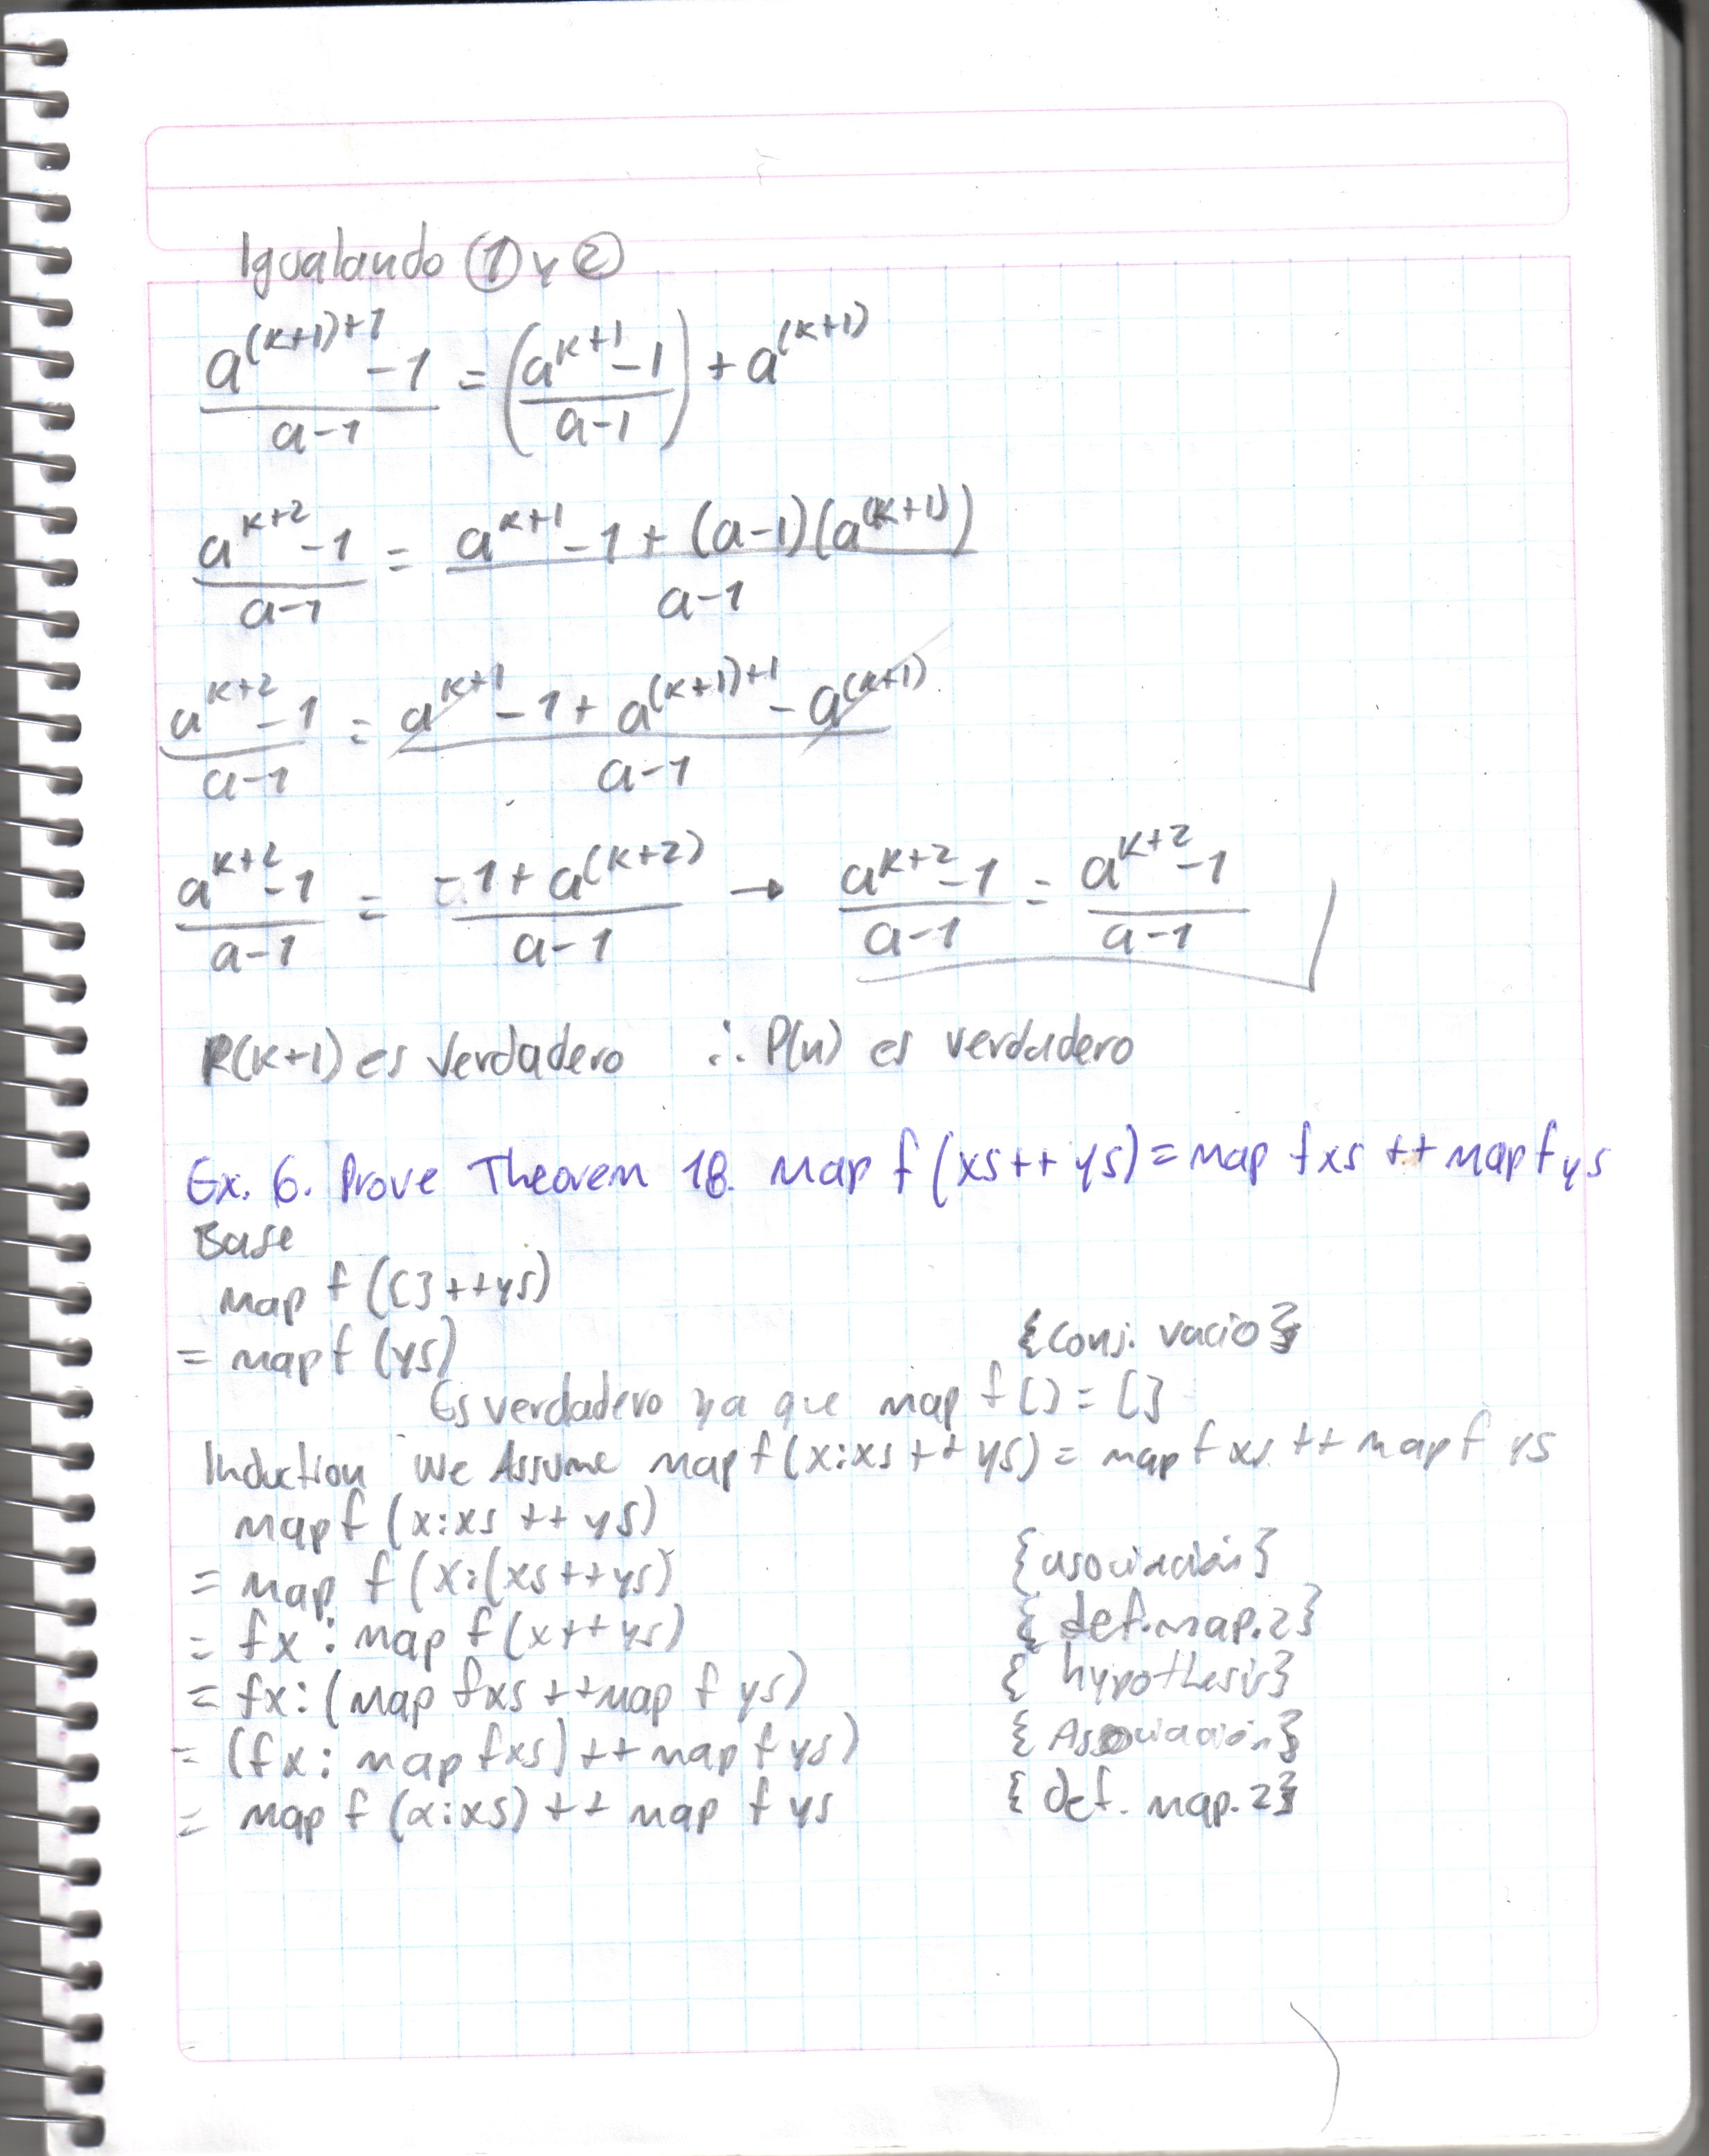 Igualando ① y ②
a^((k+1)+1) - 1 / a-1 = (a^(k+1) - 1 / a-1) + a^(k+1)
a^(k+2) - 1 / a-1 = a^(k+1) - 1 + (a-1)(a^(k+1)) / a-1
a^(k+2) - 1 / a-1 = a^(k+1) - 1 + a^((k+1)+1) - a^(k+1) / a-1
a^(k+2) - 1 / a-1 = -1 + a^(k+2) / a-1 → a^(k+2) - 1 / a-1 = a^(k+2) - 1 / a-1
P(k+1) es verdadero ∴ P(n) es verdadero
Ex. 6. Prove Theorem 18. map f (xs ++ ys) = map f xs ++ map f ys
Base
map f ([] ++ ys)
= map f (ys) {Conj. vacio}
Es verdadero ya que map f [] = []
Induction We Assume map f (x:xs ++ ys) = map f xs ++ map f ys
map f (x:xs ++ ys)
= map f (x:(xs ++ ys) {asociación}
= fx : map f (x ++ ys) {def. map.2}
= fx : (map f xs ++ map f ys) {hypothesis}
= (fx : map f xs) ++ map f ys) {Asociación}
= map f (x:xs) ++ map f ys {def. map.2}